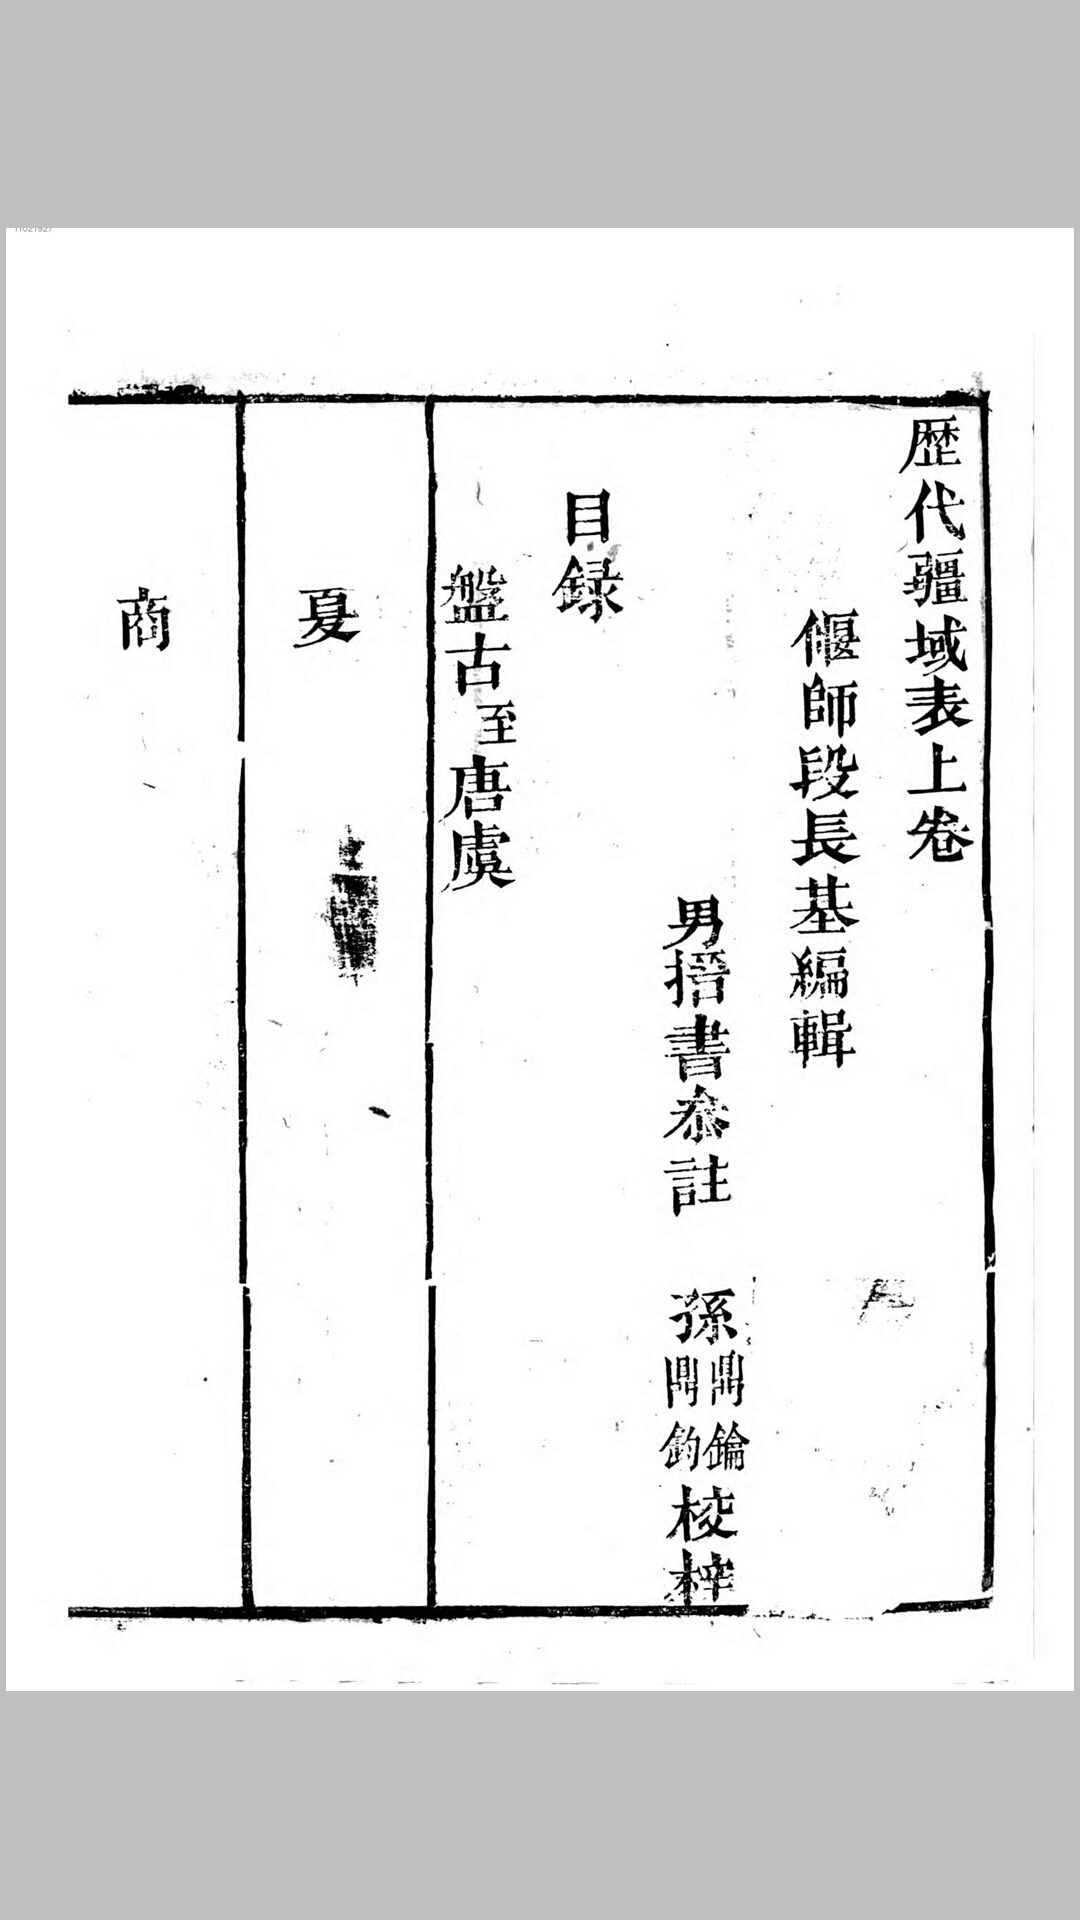 歴代疆域表上卷
偃師段長基編輯
男搢書叅註 孫鼎鑰鼎鈞校梓
目録
盤古至唐虞
夏
商